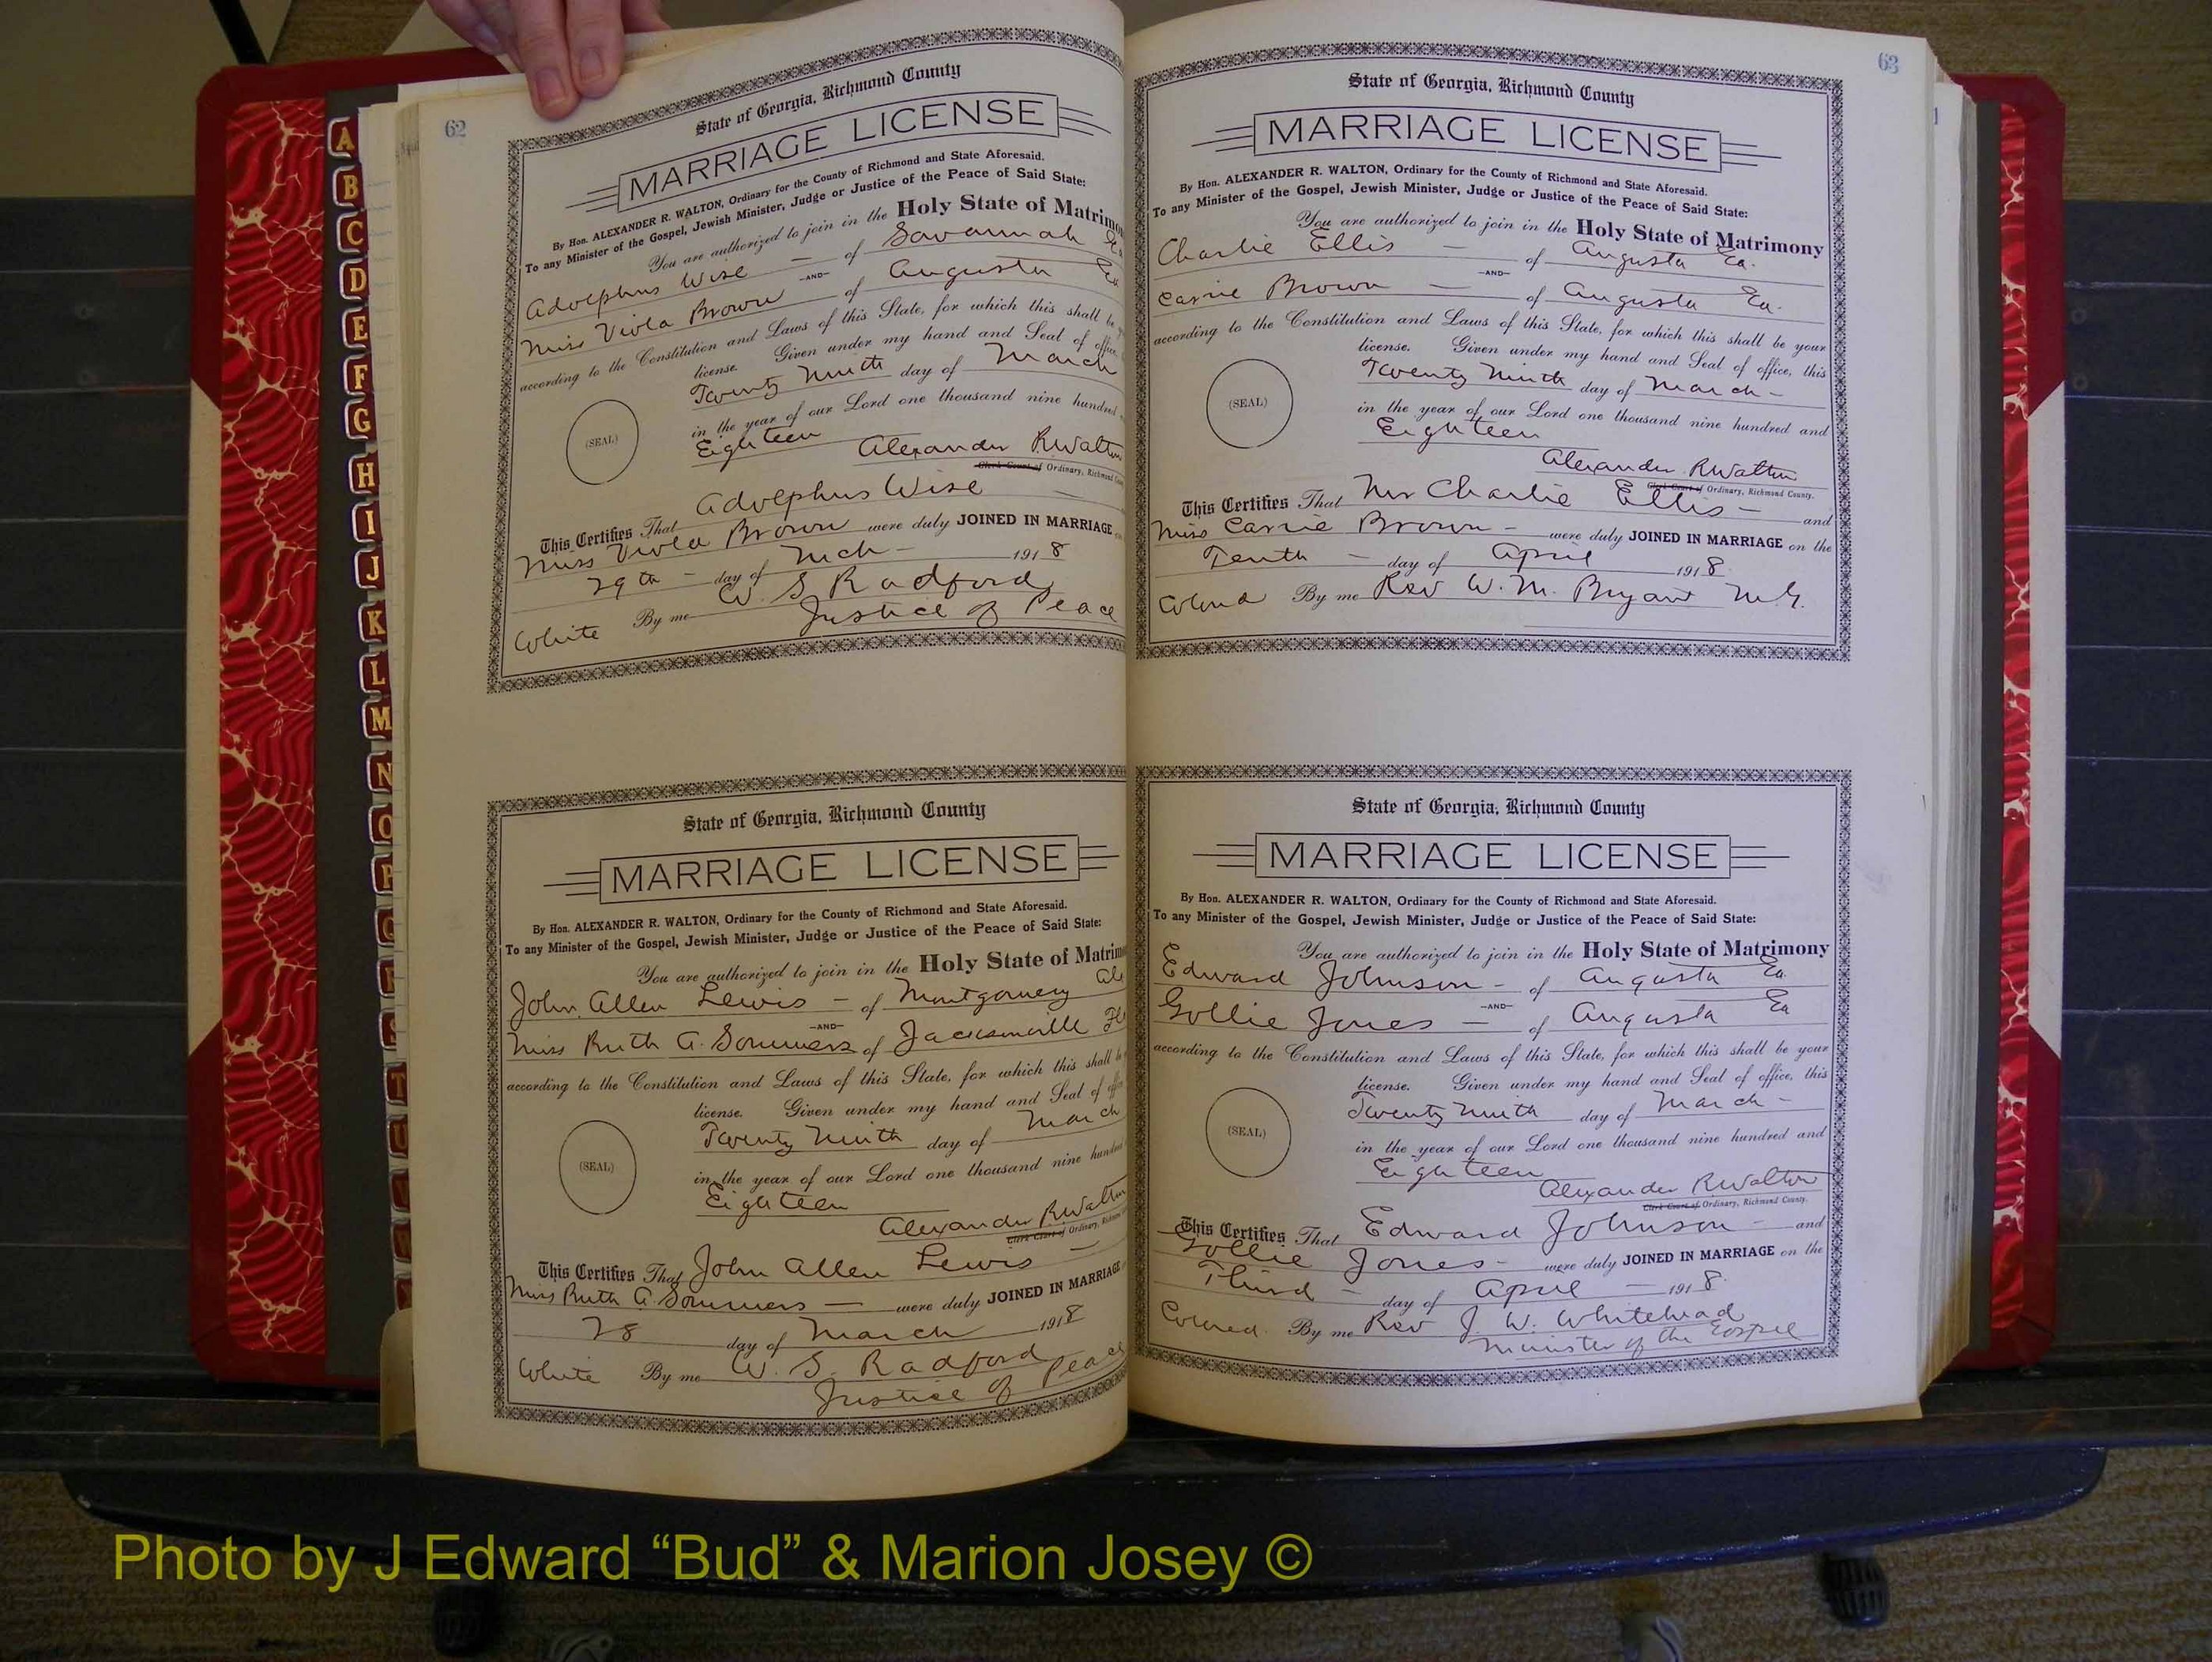 62
State of Georgia, Richmond County
MARRIAGE LICENSE
By Hon. ALEXANDER R. WALTON, Ordinary for the County of Richmond and State Aforesaid.
To any Minister of the Gospel, Jewish Minister, Judge or Justice of the Peace of Said State:
You are authorized to join in the Holy State of Matrimo
Adolphus Wise — of Savannah Ga
—AND—
Miss Viola Brown of Augusta Ga
according to the Constitution and Laws of this State, for which this shall be
license. Given under my hand and Seal of office,
Twenty Ninth day of March
in the year of our Lord one thousand nine hundred
Eighteen
Alexander R Walton
Clerk Court of Ordinary, Richmond County
(SEAL)
This Certifies That Adolphus Wise
Miss Viola Brown were duly JOINED IN MARRIAGE
29th — day of Mch — 1918
By me W. S Radford
White Justice of Peace
State of Georgia, Richmond County
MARRIAGE LICENSE
By Hon. ALEXANDER R. WALTON, Ordinary for the County of Richmond and State Aforesaid.
To any Minister of the Gospel, Jewish Minister, Judge or Justice of the Peace of Said State:
You are authorized to join in the Holy State of Matrim
John Allen Lewis — of Montgomery Ala
—AND—
Miss Ruth A. Sommers of Jacksonville Fl
according to the Constitution and Laws of this State, for which this shall be
license. Given under my hand and Seal of office
Twenty Ninth day of March
in the year of our Lord one thousand nine hundred
Eighteen
Alexander R Walton
Clerk Court of Ordinary, Richmond
(SEAL)
This Certifies That John Allen Lewis —
Miss Ruth A. Sommers — were duly JOINED IN MARRIAGE
28 day of March 1918
White By me W. S. Radford
Justice of Peace
63
State of Georgia, Richmond County
MARRIAGE LICENSE
By Hon. ALEXANDER R. WALTON, Ordinary for the County of Richmond and State Aforesaid.
To any Minister of the Gospel, Jewish Minister, Judge or Justice of the Peace of Said State:
You are authorized to join in the Holy State of Matrimony
Charlie Ellis — of Augusta Ga.
—AND—
Carrie Brown — of Augusta Ga.
according to the Constitution and Laws of this State, for which this shall be your
license. Given under my hand and Seal of office, this
Twenty Ninth day of March —
in the year of our Lord one thousand nine hundred and
Eighteen
Alexander R Walton
Clerk Court of Ordinary, Richmond County.
(SEAL)
This Certifies That Mr Charlie Ellis — and
Miss Carrie Brown — were duly JOINED IN MARRIAGE on the
Tenth — day of April 1918
Colored By me Rev W. M. Bryant M.G.
State of Georgia, Richmond County
MARRIAGE LICENSE
By Hon. ALEXANDER R. WALTON, Ordinary for the County of Richmond and State Aforesaid.
To any Minister of the Gospel, Jewish Minister, Judge or Justice of the Peace of Said State:
You are authorized to join in the Holy State of Matrimony
Edward Johnson — of Augusta Ga
—AND—
Gollie Jones — of Augusta Ga
according to the Constitution and Laws of this State, for which this shall be your
license. Given under my hand and Seal of office, this
Twenty Ninth day of March —
in the year of our Lord one thousand nine hundred and
Eighteen
Alexander R Walton
Clerk Court of Ordinary, Richmond County.
(SEAL)
This Certifies That Edward Johnson — and
Gollie Jones — were duly JOINED IN MARRIAGE on the
Third — day of April — 1918
Colored. By me Rev J. W. Whitehead
Minister of the Gospel
A
B
C
D
E
F
G
H
I
J
K
L
M
N
O
P
Q
R
S
T
U
Photo by J Edward “Bud” & Marion Josey ©